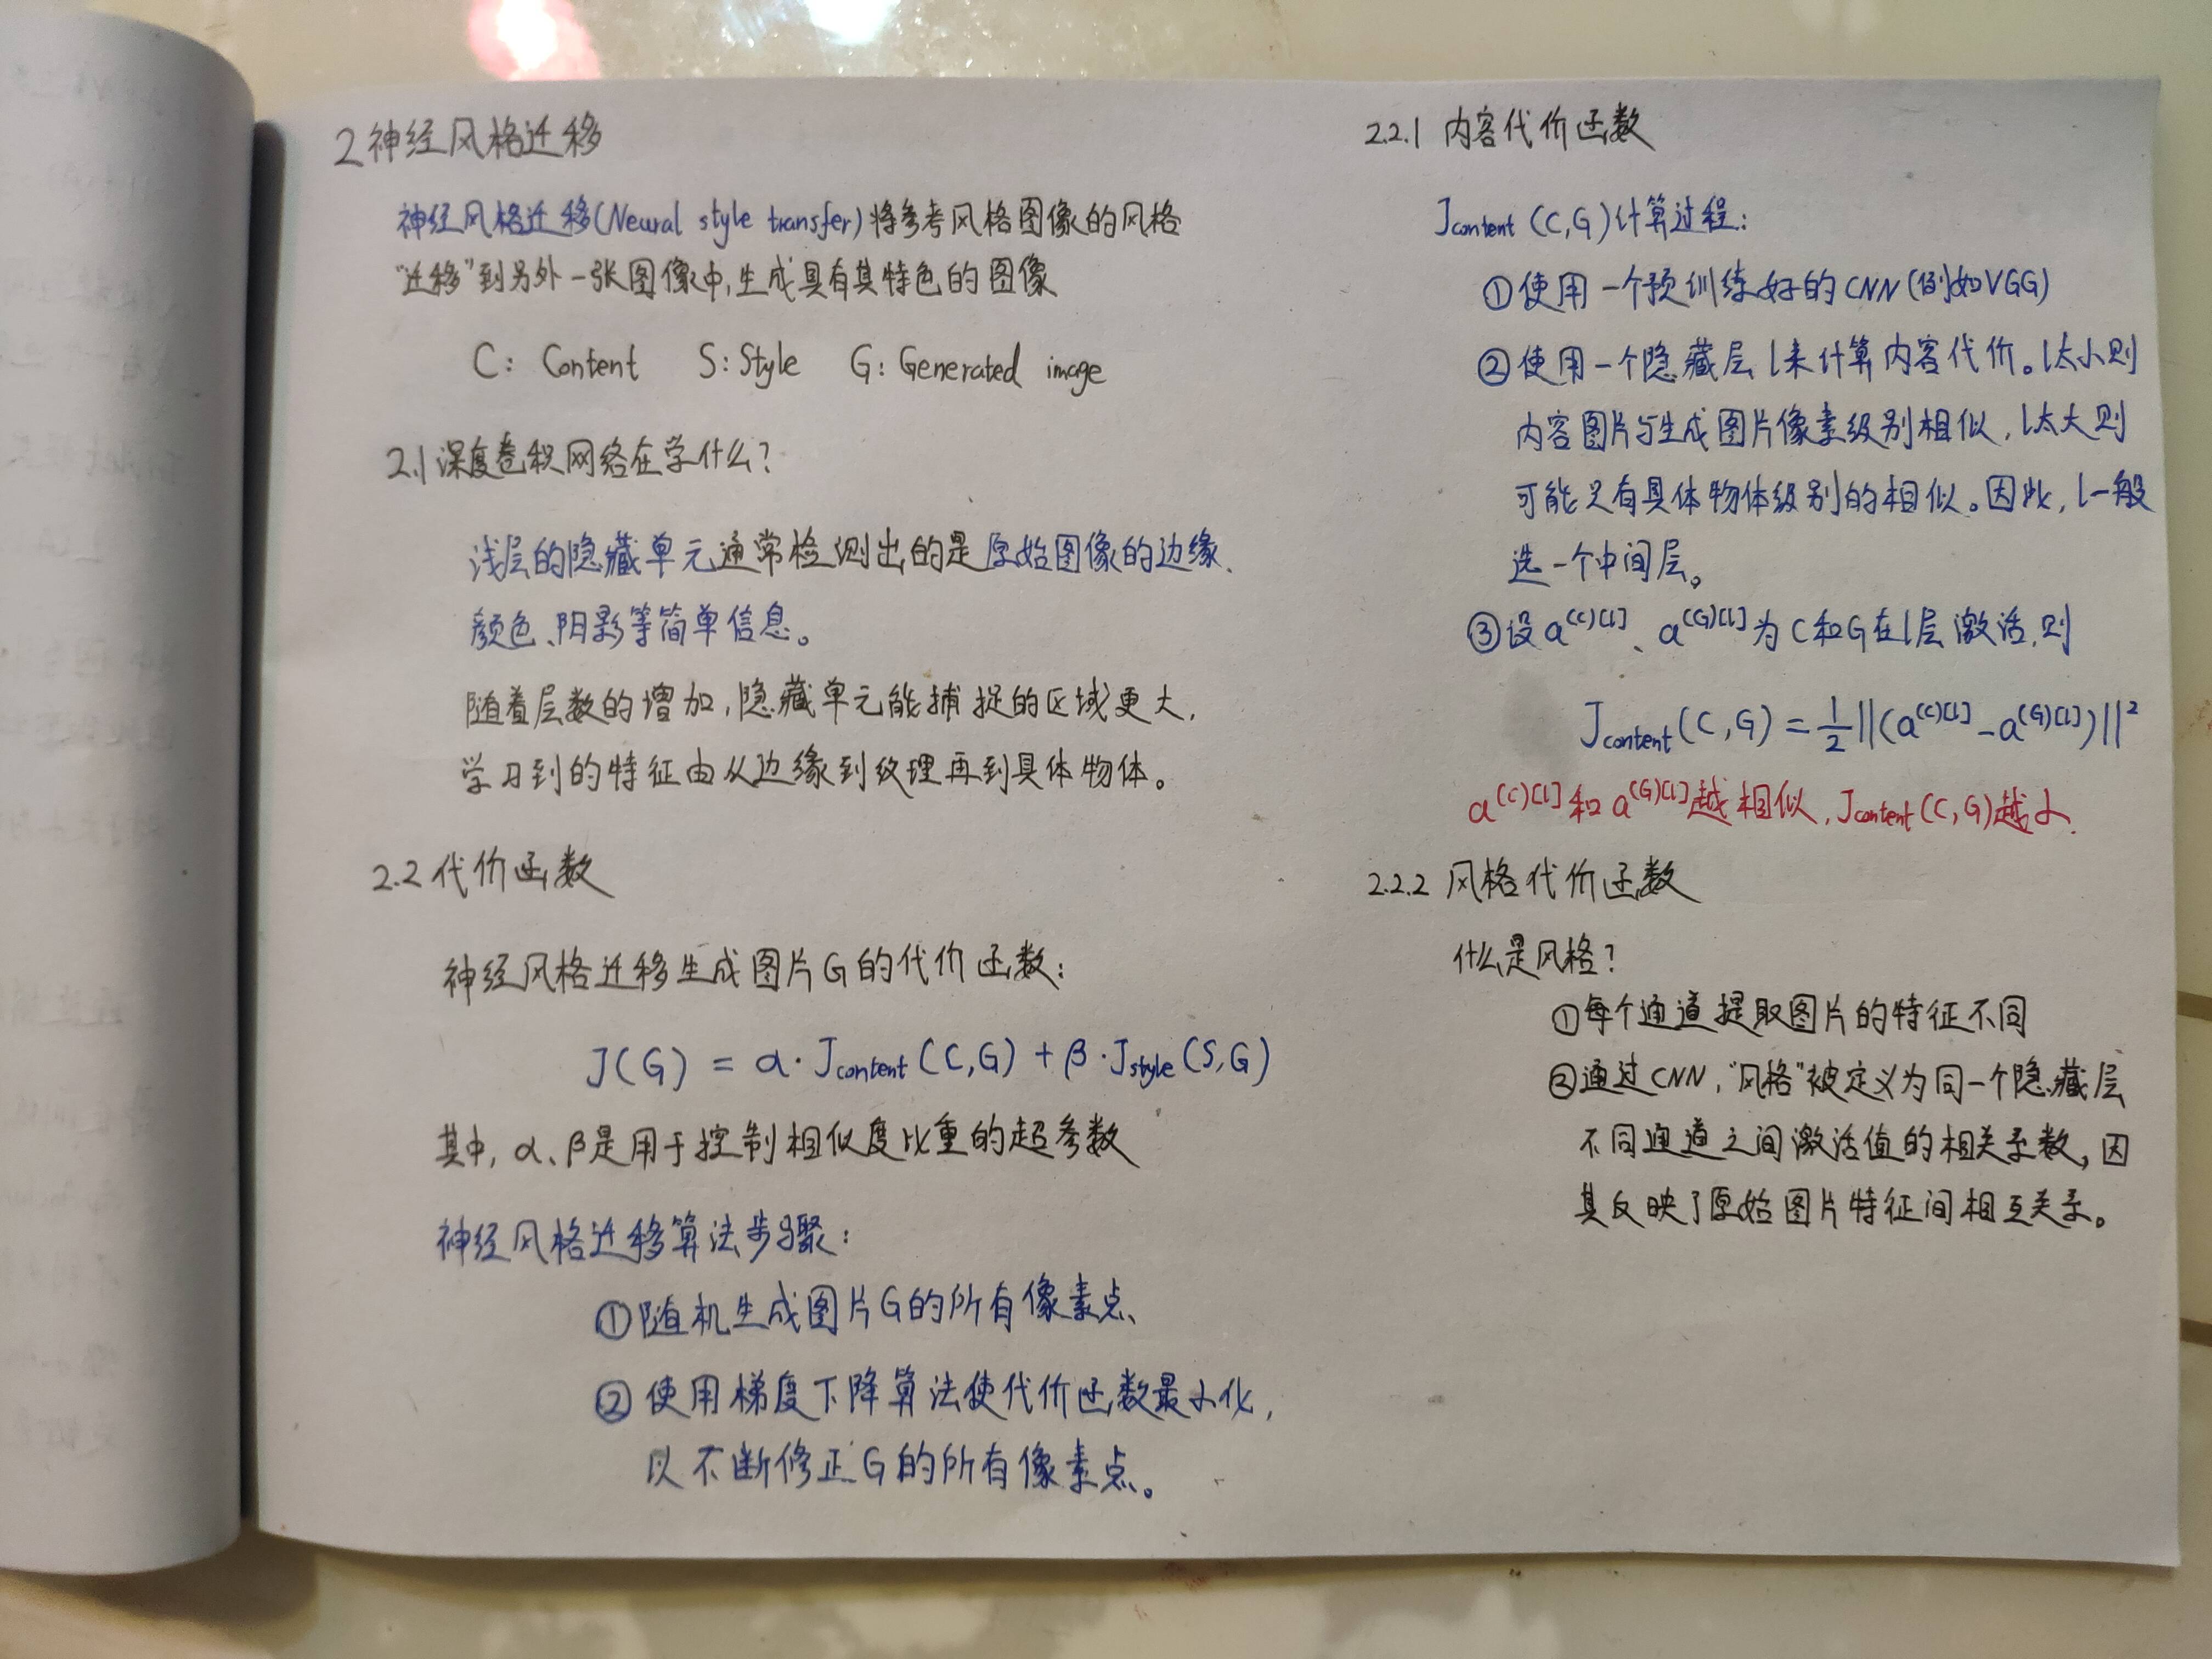 2 神经风格迁移
神经风格迁移(Neural style transfer)将参考风格图像的风格
“迁移”到另外一张图像中,生成具有其特色的图像
C: Content S: Style G: Generated image
2.1 深度卷积网络在学什么?
浅层的隐藏单元通常检测出的是原始图像的边缘、
颜色、阴影等简单信息。
随着层数的增加,隐藏单元能捕捉的区域更大,
学习到的特征由从边缘到纹理再到具体物体。
2.2 代价函数
神经风格迁移生成图片G的代价函数:
J(G) = α·J_content(C,G) + β·J_style(S,G)
其中, α、β是用于控制相似度比重的超参数
神经风格迁移算法步骤:
①随机生成图片G的所有像素点、
②使用梯度下降算法使代价函数最小化,
以不断修正G的所有像素点。
2.2.1 内容代价函数
J_content(C,G)计算过程:
①使用一个预训练好的CNN(例如VGG)
②使用一个隐藏层l来计算内容代价。l太小则
内容图片与生成图片像素级别相似,l太大则
可能只有具体物体级别的相似。因此,l一般
选一个中间层。
③设a^(C)[l]、a^(G)[l]为C和G在l层激活,则
J_content(C,G) = 1/2||(a^(C)[l] - a^(G)[l])||²
a^(C)[l]和a^(G)[l]越相似,J_content(C,G)越小.
2.2.2 风格代价函数
什么是风格?
①每个通道提取图片的特征不同
②通过CNN,“风格”被定义为同一个隐藏层
不同通道之间激活值的相关系数,因
其反映了原始图片特征间相互关系。